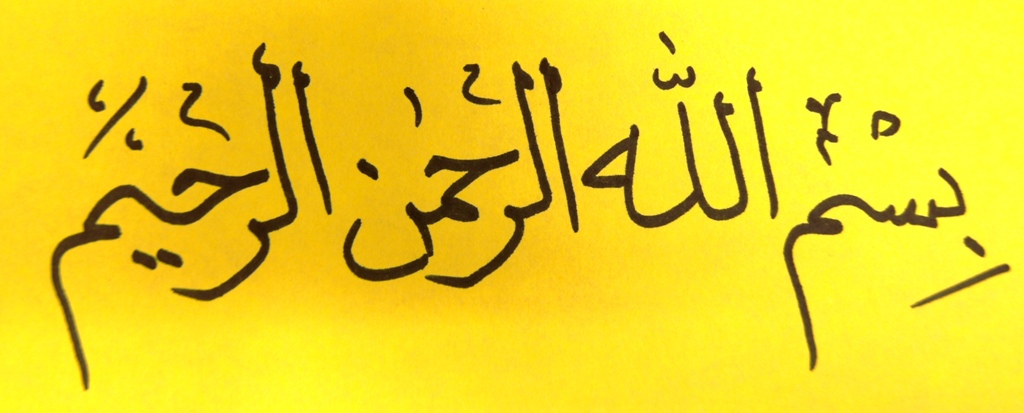 بِسْمِ اللّٰه الرَّحْمٰن الرَّحِيْم